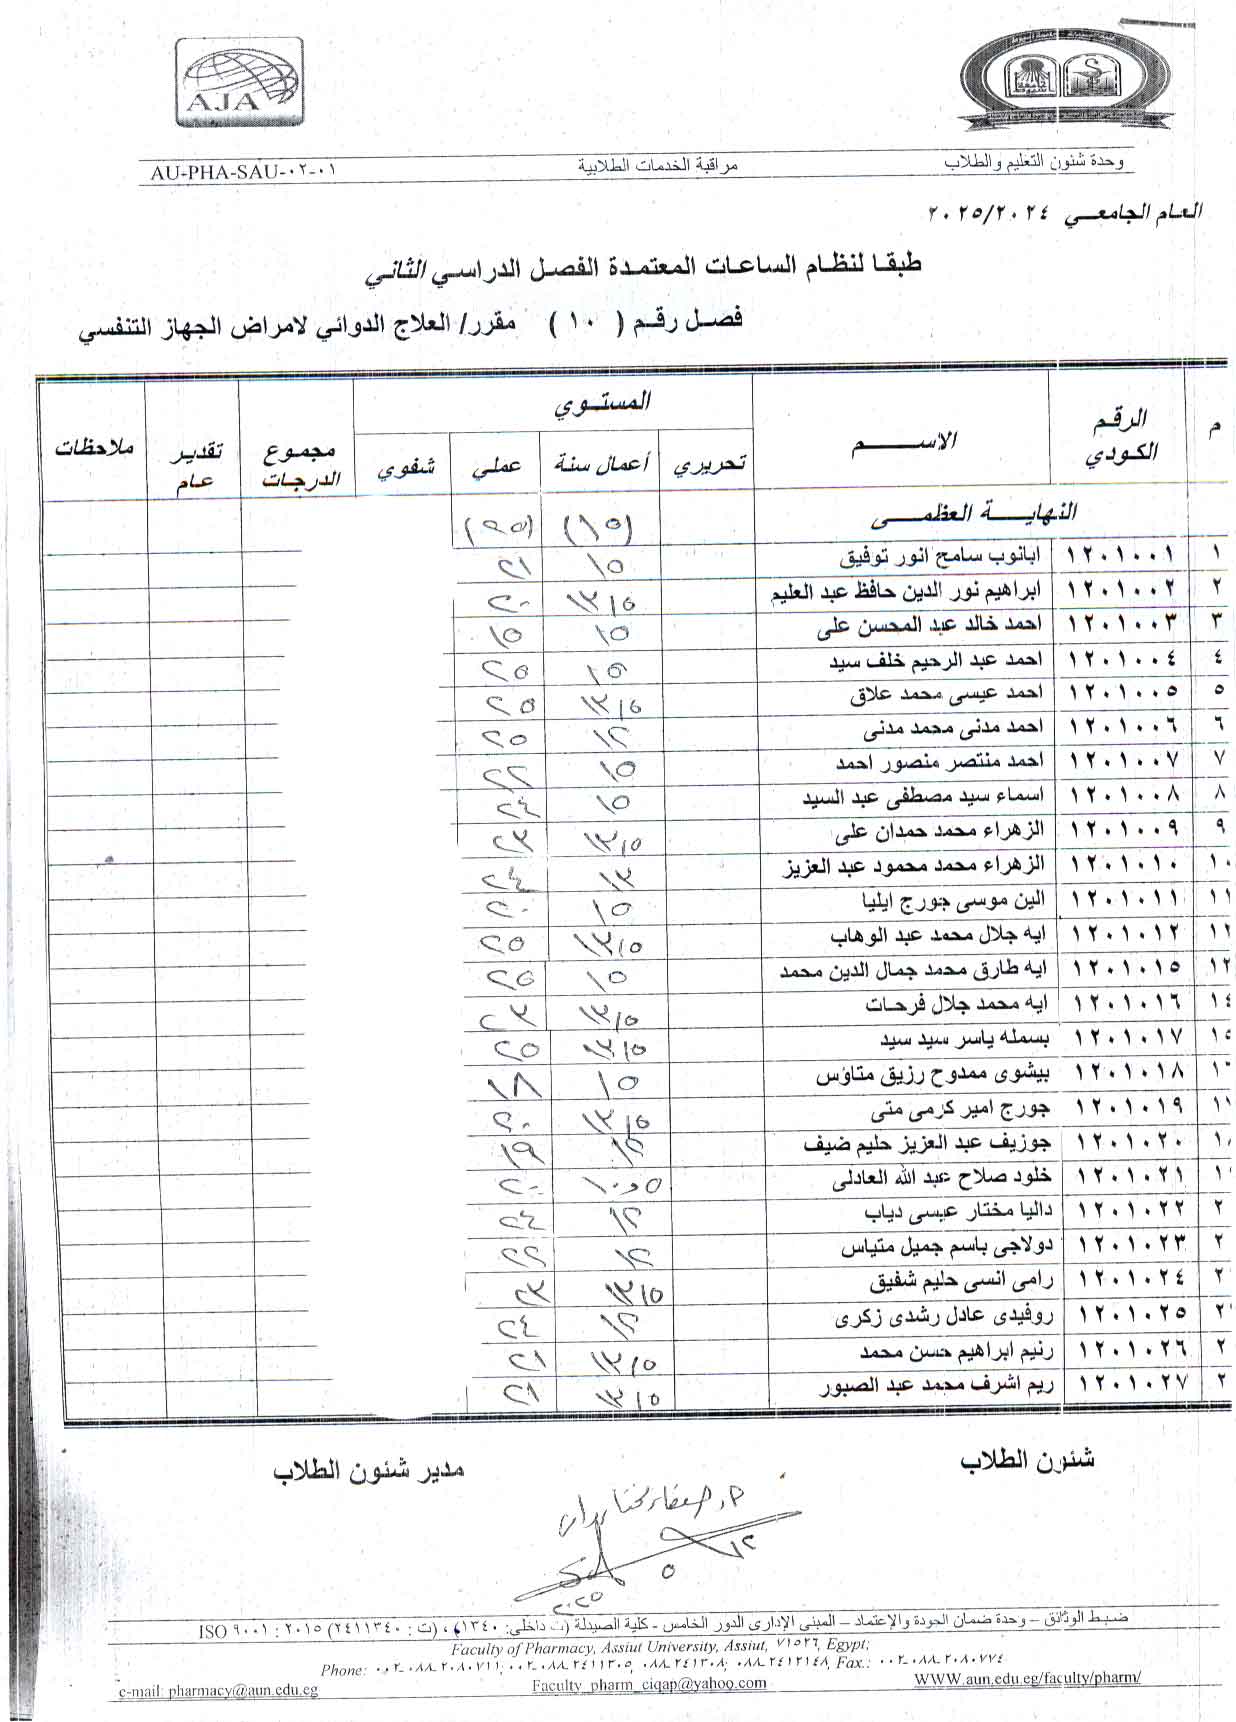 AJA
AU-PHA-SAU-٠٢-٠١ مراقبة الخدمات الطلابية وحدة شئون التعليم والطلاب
العام الجامعي ٢٠٢٥/٢٠٢٤
طبقا لنظام الساعات المعتمدة الفصل الدراسي الثاني
فصل رقم ( ١٠ ) مقرر/ العلاج الدوائي لامراض الجهاز التنفسي
م الرقم الكودي الاسم المستوي مجموع الدرجات تقدير عام ملاحظات
تحريري أعمال سنة عملي شفوي
النهاية العظمى (١٥) (٢٥)
١ ١٢٠١٠٠١ ابانوب سامح انور توفيق ١٥ ٢١
٢ ١٢٠١٠٠٢ ابراهيم نور الدين حافظ عبد العليم ١٣,٥ ٢٠
٣ ١٢٠١٠٠٣ احمد خالد عبد المحسن على ١٥ ١٥
٤ ١٢٠١٠٠٤ احمد عبد الرحيم خلف سيد ١٥ ٢٥
٥ ١٢٠١٠٠٥ احمد عيسى محمد علاق ١٣,٥ ٢٥
٦ ١٢٠١٠٠٦ احمد مدنى محمد مدنى ١٢ ٢٥
٧ ١٢٠١٠٠٧ احمد منتصر منصور احمد ١٥ ٢٢
٨ ١٢٠١٠٠٨ اسماء سيد مصطفى عبد السيد ١٥ ٢٤
٩ ١٢٠١٠٠٩ الزهراء محمد حمدان على ١٣,٥ ٢٣
١٠ ١٢٠١٠١٠ الزهراء محمد محمود عبد العزيز ١٣ ٢٤
١١ ١٢٠١٠١١ الين موسى جورج ايليا ١٥ ٢٠
١٢ ١٢٠١٠١٢ ايه جلال محمد عبد الوهاب ١٣,٥ ٢٥
١٣ ١٢٠١٠١٥ ايه طارق محمد جمال الدين محمد ١٥ ٢٥
١٤ ١٢٠١٠١٦ ايه محمد جلال فرحات ١٣,٥ ٢٣
١٥ ١٢٠١٠١٧ بسمله ياسر سيد سيد ١٣,٥ ٢٥
١٢٠١٠١٨ بيشوى ممدوح رزيق متاؤس ١٥ ١٨
١٢٠١٠١٩ جورج امير كرمى متى ١٣,٥ ٢٠
١٢٠١٠٢٠ جوزيف عبد العزيز حليم ضيف ١٢ ١٩
١٢٠١٠٢١ خلود صلاح عبد الله العادلى ١٠,٥ ٢٠
١٢٠١٠٢٢ داليا مختار عيسى دياب ١٢ ٢٤
١٢٠١٠٢٣ دولاجى باسم جميل متياس ١٢ ٢٢
١٢٠١٠٢٤ رامى انسى حليم شفيق ١٣,٥ ٢٣
١٢٠١٠٢٥ روفيدى عادل رشدى زكرى ١٢ ٢٤
١٢٠١٠٢٦ رنيم ابراهيم حسن محمد ١٣,٥ ٢١
١٢٠١٠٢٧ ريم اشرف محمد عبد الصبور ١٣,٥ ٢١
شئون الطلاب مدير شئون الطلاب
٢٠٢٥
ضبط الوثائق – وحدة ضمان الجودة والإعتماد – المبنى الإدارى الدور الخامس - كلية الصيدلة (ت داخلى: ١٣٤٠)، (ت : ٢٤١١٣٤٠) ISO ٩٠٠١ : ٢٠١٥
Faculty of Pharmacy, Assiut University, Assiut, ٧١٥٢٦, Egypt;
Phone: ٠٠٢-٠٨٨-٢٠٨٠٧١١; ٠٠٢-٠٨٨-٢٤١١٣٠٥, ٠٨٨-٢٤١٣٠٨; ٠٨٨-٢٤١٢١٤٨, Fax.: ٠٠٢-٠٨٨-٢٠٨٠٧٧٤
e-mail: pharmacy@aun.edu.eg Faculty_pharm_ciqap@yahoo.com WWW.aun.edu.eg/faculty/pharm/